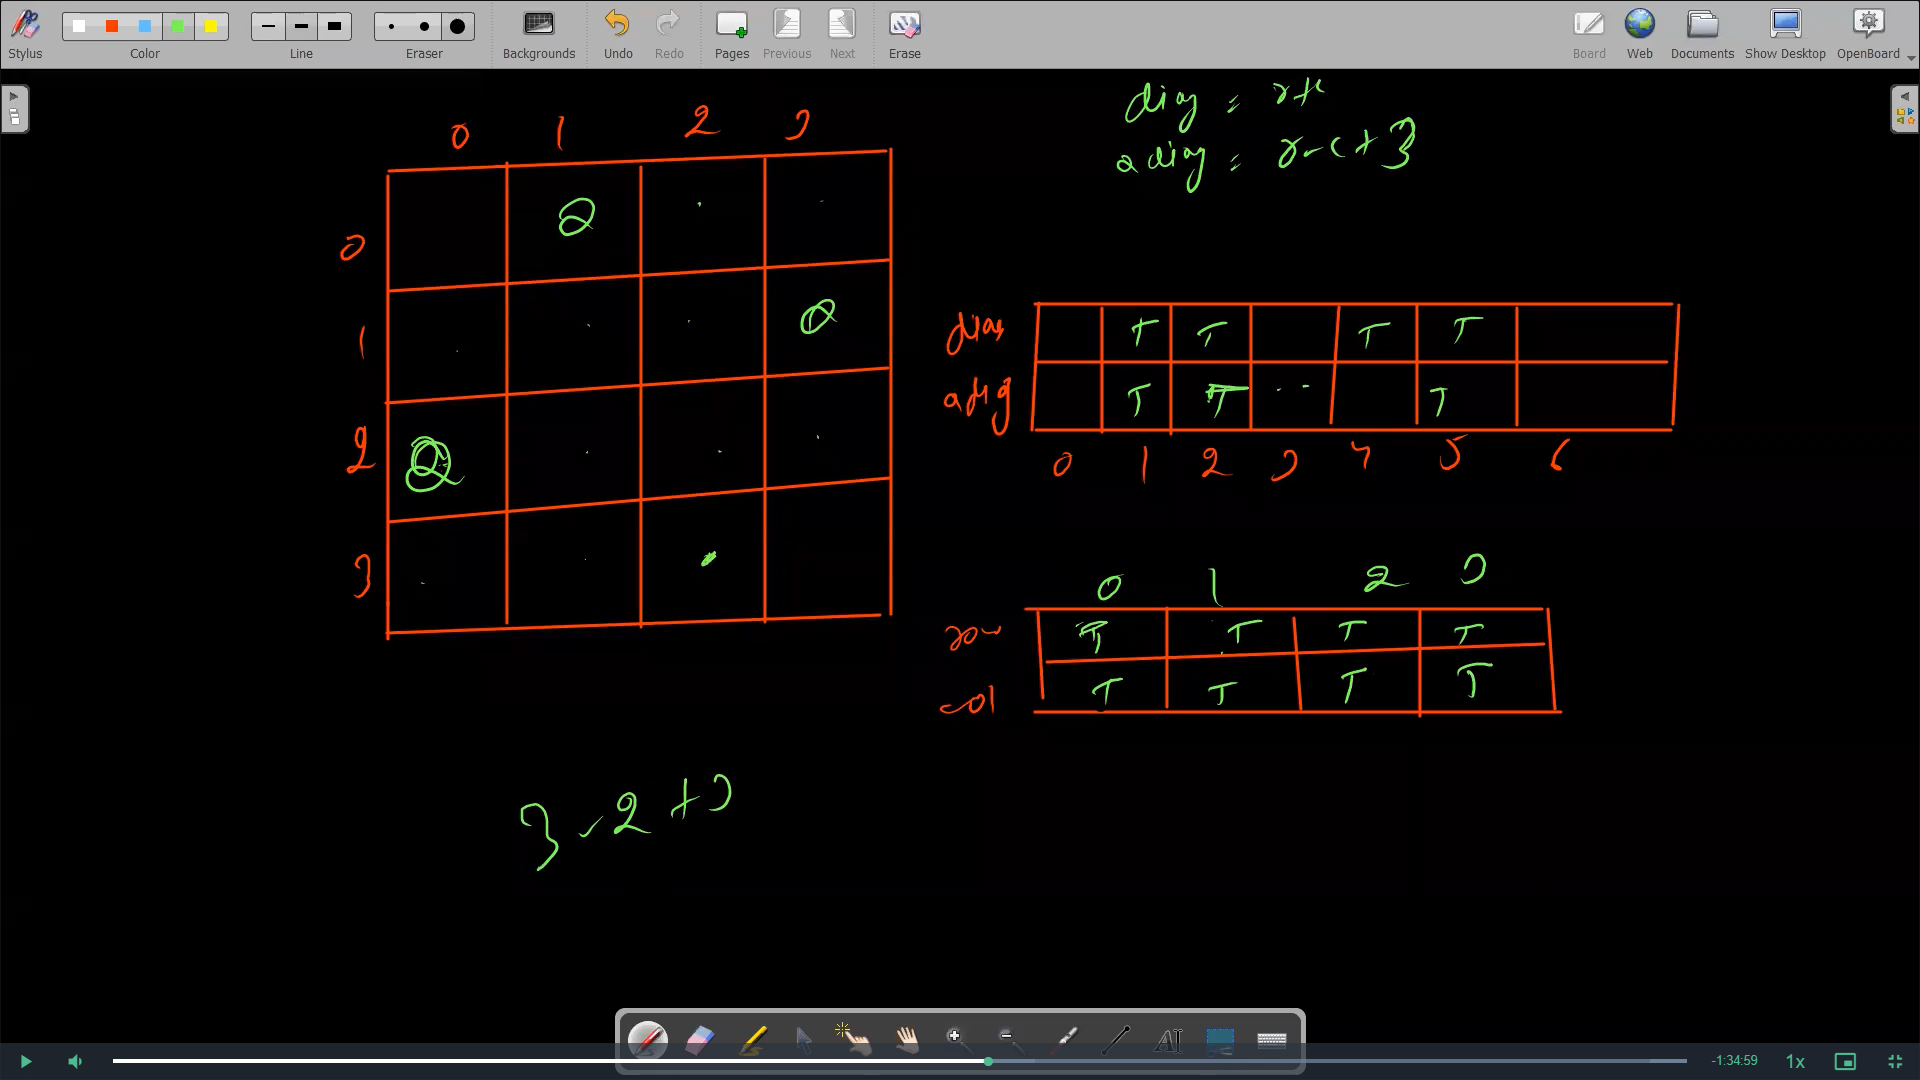 Stylus Color Line Eraser Backgrounds Undo Redo Pages Previous Next Erase Board Web Documents Show Desktop OpenBoard
diag = r+c
adiag = r-c+3
0 1 2 3
0 Q
1 Q
2 Q
3
diag T T T T
adig T T T
0 1 2 3 4 5 6
0 1 2 3
row T T T T
col T T T T
3-2+3
-1:34:59 1x